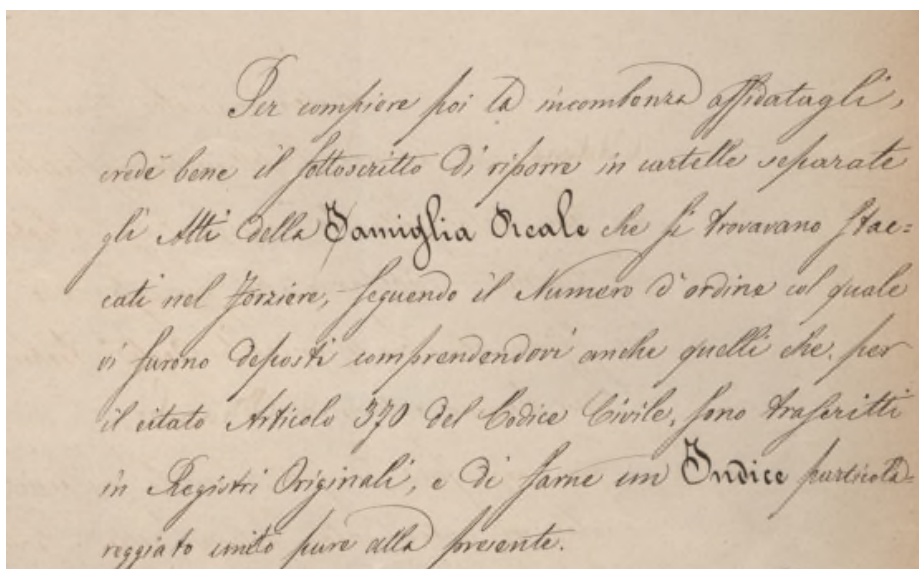 Per compiere poi la incombenza affidatagli,
credè bene il sottoscritto di riporre in cartelle separate
gli Atti della Famiglia Reale che si trovavano stac=
cati nel forziere, seguendo il Numero d'ordine col quale
vi furono deposti comprendendovi anche quelli che per
il citato Articolo 370 del Codice Civile, sono trascritti
in Registri Originali, e di farne un Indice particola=
reggiato unito pure alla presente.